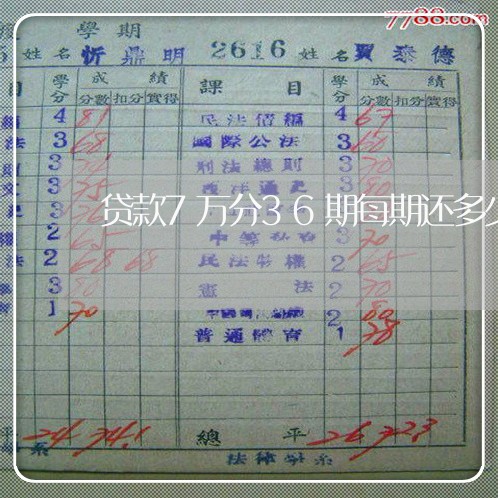 7788.com
學期
姓名 忻鼎明 2616 姓名 賈泰德
目 學分 成績 課目 學分 成績
分數 扣分 實得 分數 扣分 實得
4 81 民法債編 4 67
法 3 68 國際公法 3 60
3 刑法總則 3 70
3 75 西洋通史 3 80
貸款7万分36期每期还多少
2 65 3 70
法 2 68 68 民法物權 2 65
3 80 憲法 2 70
1 70 2 80
普通體育 1 78
平 24 74.1 總平 26 72.3
系 法律學系